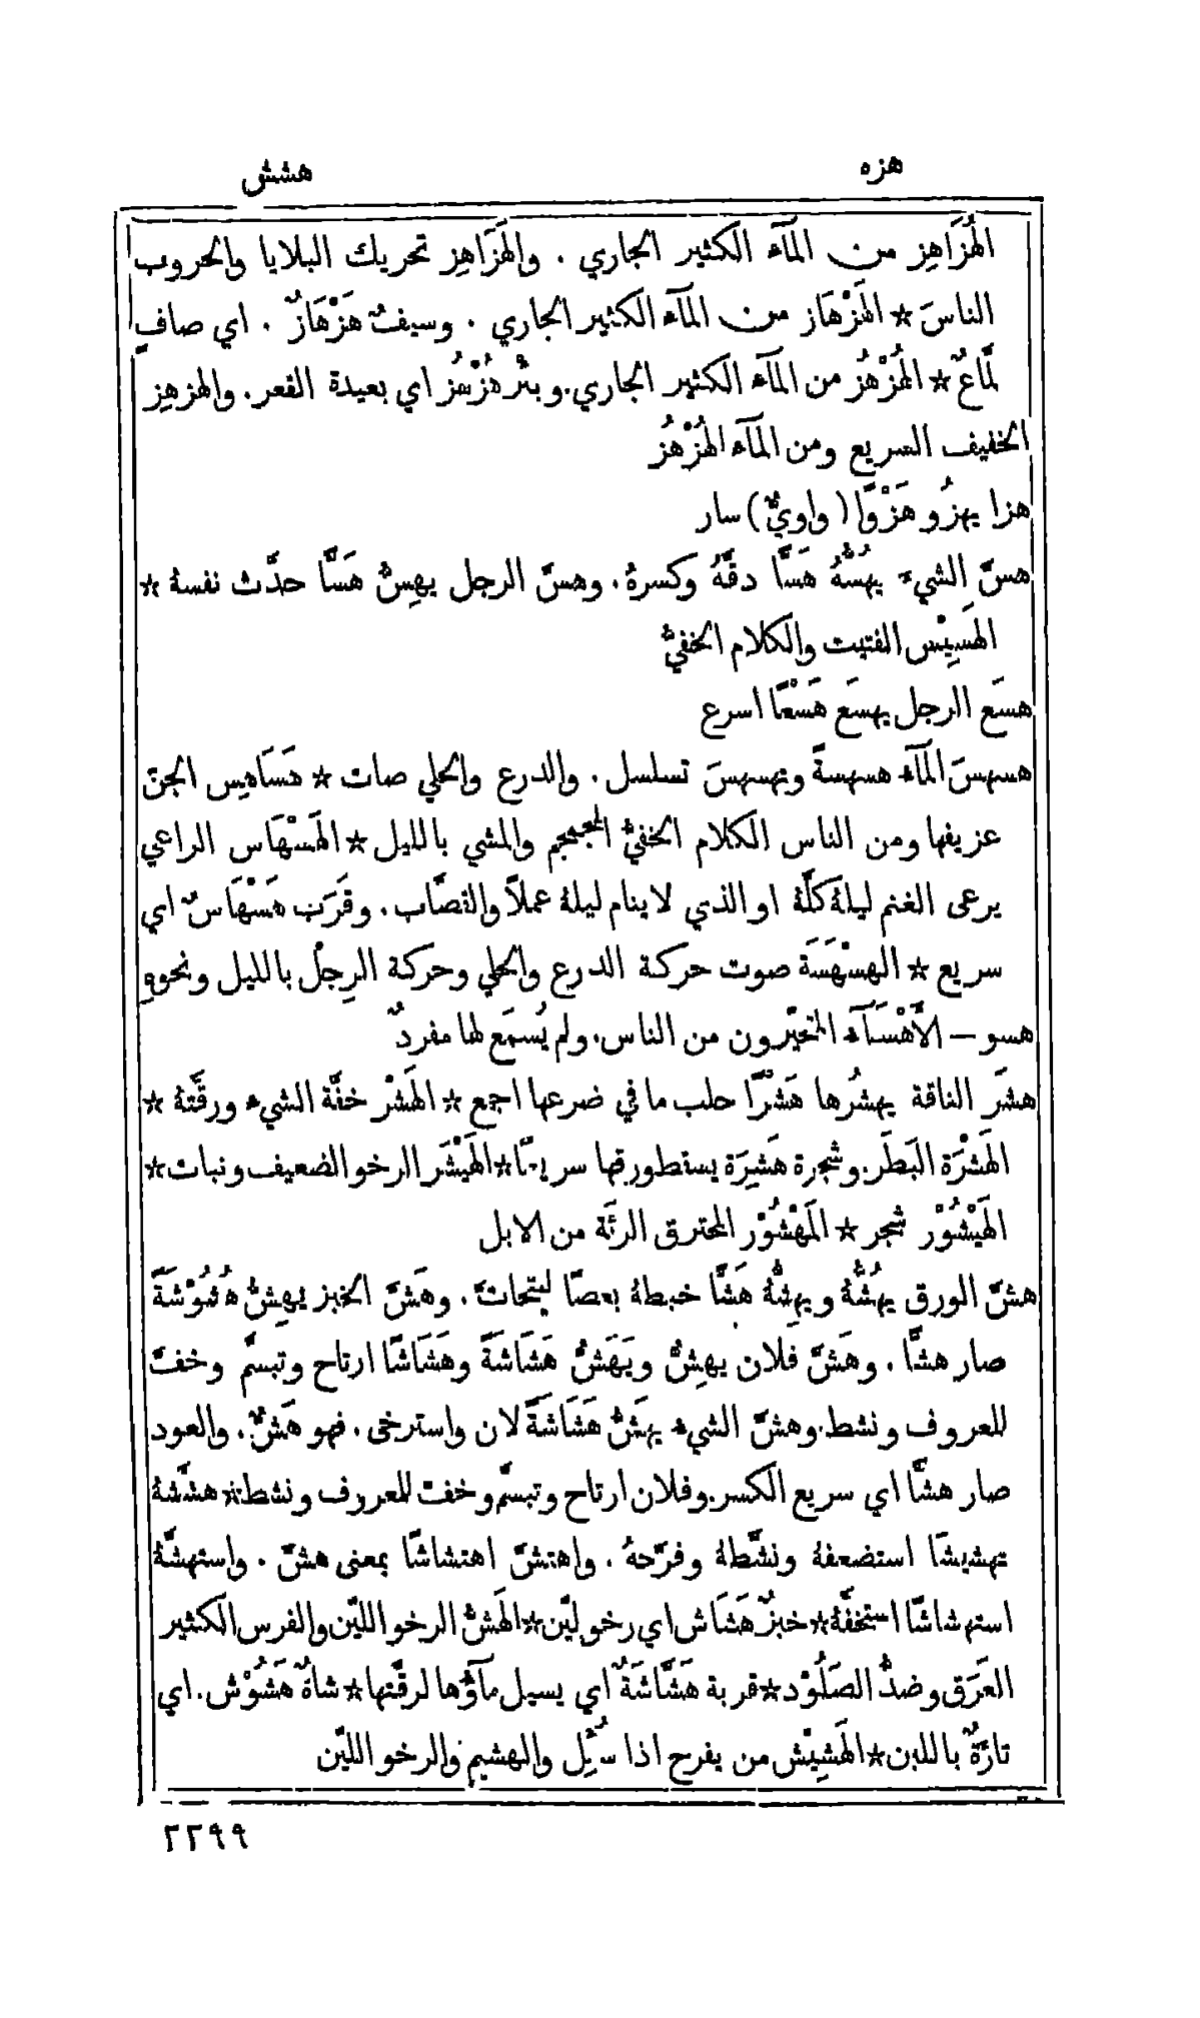 هزه
هشش
الهُزَاهِز من المآء الكثير الجاري . والهَزَاهِز تحريك البلايا والحروب
الناسَ ☆ الهَزْهَاز من المآء الكثير الجاري . وسيفٌ هَزْهَازٌ . اي صافٍ
لمَّاعٌ ☆ الهُزْهُز من المآء الكثير الجاري. وبئر هُزْهُز اي بعيدة القعر. والهزهِز
الخفيف السريع ومن المآء الهُزْهُز
هزا يهزُو هَزْوًا (واويٌّ) سار
هسَّ الشيءَ يهُسُّهُ هَسًّا دقَّهُ وكسرهُ. وهسَّ الرجل يهِسُّ هَسًّا حدَّث نفسهُ ☆
الهَسِيْس الفتيت والكلام الخفيُّ
هسَع الرجل يهسَع هَسْعًا اسرع
هسهسَ المآء هسهسةً وتهسهسَ تسلسل. والدرع والحلي صات ☆ هَسَاهِس الجنّ
عزيفها ومن الناس الكلام الخفيُّ المجمجم والمشي بالليل ☆ الهَسْهَاس الراعي
يرعى الغنم ليلهُ كلَّهُ او الذي لا ينام ليلهُ عملاً والقصَّاب. وقَرَب هَسْهَاسٌ اي
سريع ☆ الهسْهَسَة صوت حركة الدرع والحلي وحركة الرِجْل بالليل ونحوهِ
هسو — الأَهْسَآء المتخيّرون من الناس. ولم يُسمَع لها مفردٌ
هشَر الناقة يهشُرها هَشْرًا حلب ما في ضرعها اجمع ☆ الهَشْر خفَّة الشيء ورقَّتهُ ☆
الهَشْرَة البَطَر. وشجرة هَشِيرَة يسقط ورقها سريعًا ☆ الهَيْشَر الرخو الضعيف ونبات ☆
الهَيْشُوْر شجر ☆ المَهْشُوْر المحترق الرئَة من الابل
هشَّ الورق يهُشُّهُ ويهِشُّهُ هَشًّا خبطهُ بعصًا ليتحاتَّ. وهَشَّ الخبز يهِشُّ هُشُوْشَةً
صار هشًّا . وهَشَّ فلان يهِشُّ ويَهَشُّ هَشَاشَةً وهَشَاشًا ارتاح وتبسَّم وخفَّ
للمعروف ونشط. وهشَّ الشيء يهَشُّ هَشَاشَةً لان واسترخى. فهو هَشٌّ. والعود
صار هشًّا اي سريع الكسر. وفلان ارتاح وتبسَّم وخفَّ للمعروف ونشط ☆ هشَّشهُ
تهشيشًا استضعفهُ ونشَّطهُ وفرَّحهُ . واهتشَّ اهتشاشًا بمعنى هشَّ . واستهشَّهُ
استهشاشًا استخفَّهُ ☆ خبزٌ هَشَاش اي رخو ليّن ☆ الهَشّ الرخو الليّن والفرس الكثير
العَرَق وضدُّ الصَلُوْد ☆ قربة هَشَّاشَةٌ اي يسيل مآؤُها لرقَّتها ☆ شاةٌ هَشُوْش. اي
تارَّةٌ باللبن ☆ الهَشِيْش من يفرح اذا سُئِل والهشيم والرخو الليّن
٢٢٩٩